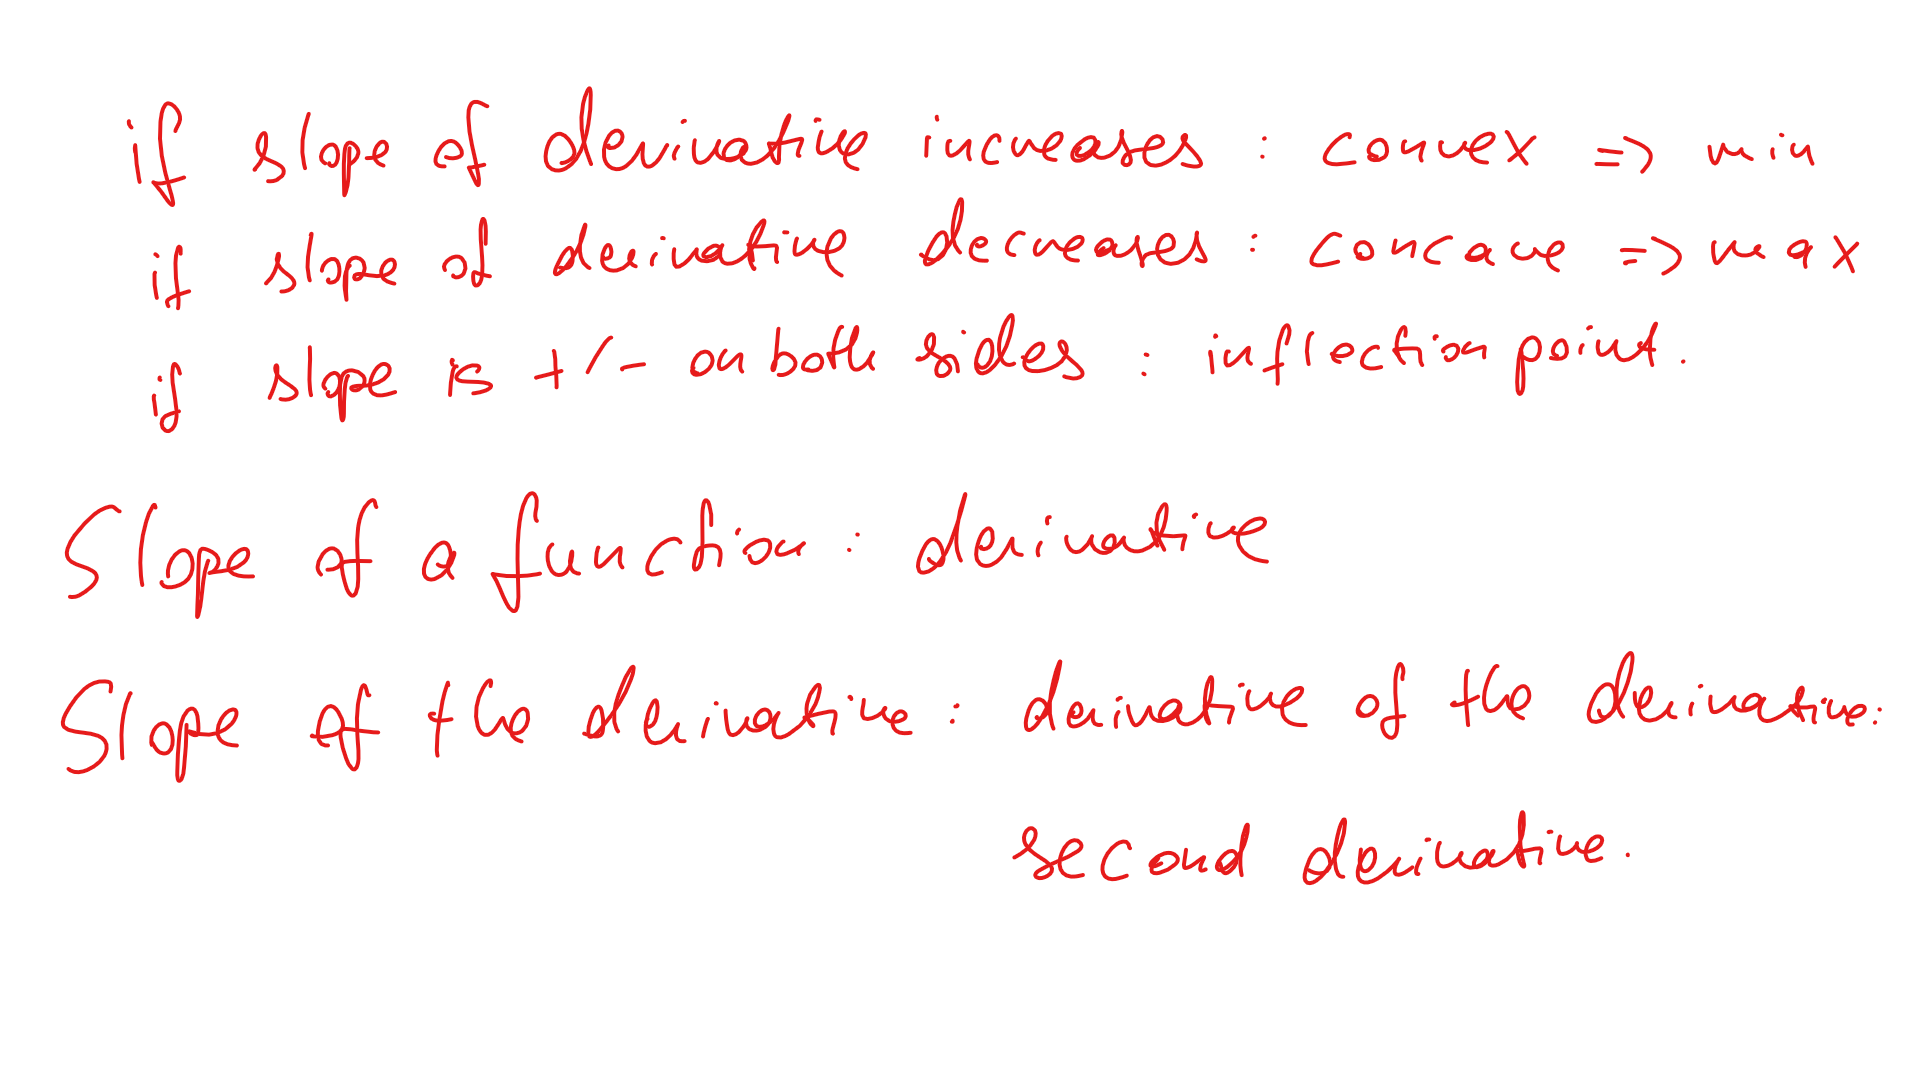 if slope of derivative increases : convex => min
if slope of derivative decreases : concave => max
if slope is +/- on both sides : inflection point.
Slope of a function : derivative
Slope of the derivative : derivative of the derivative.
second derivative.